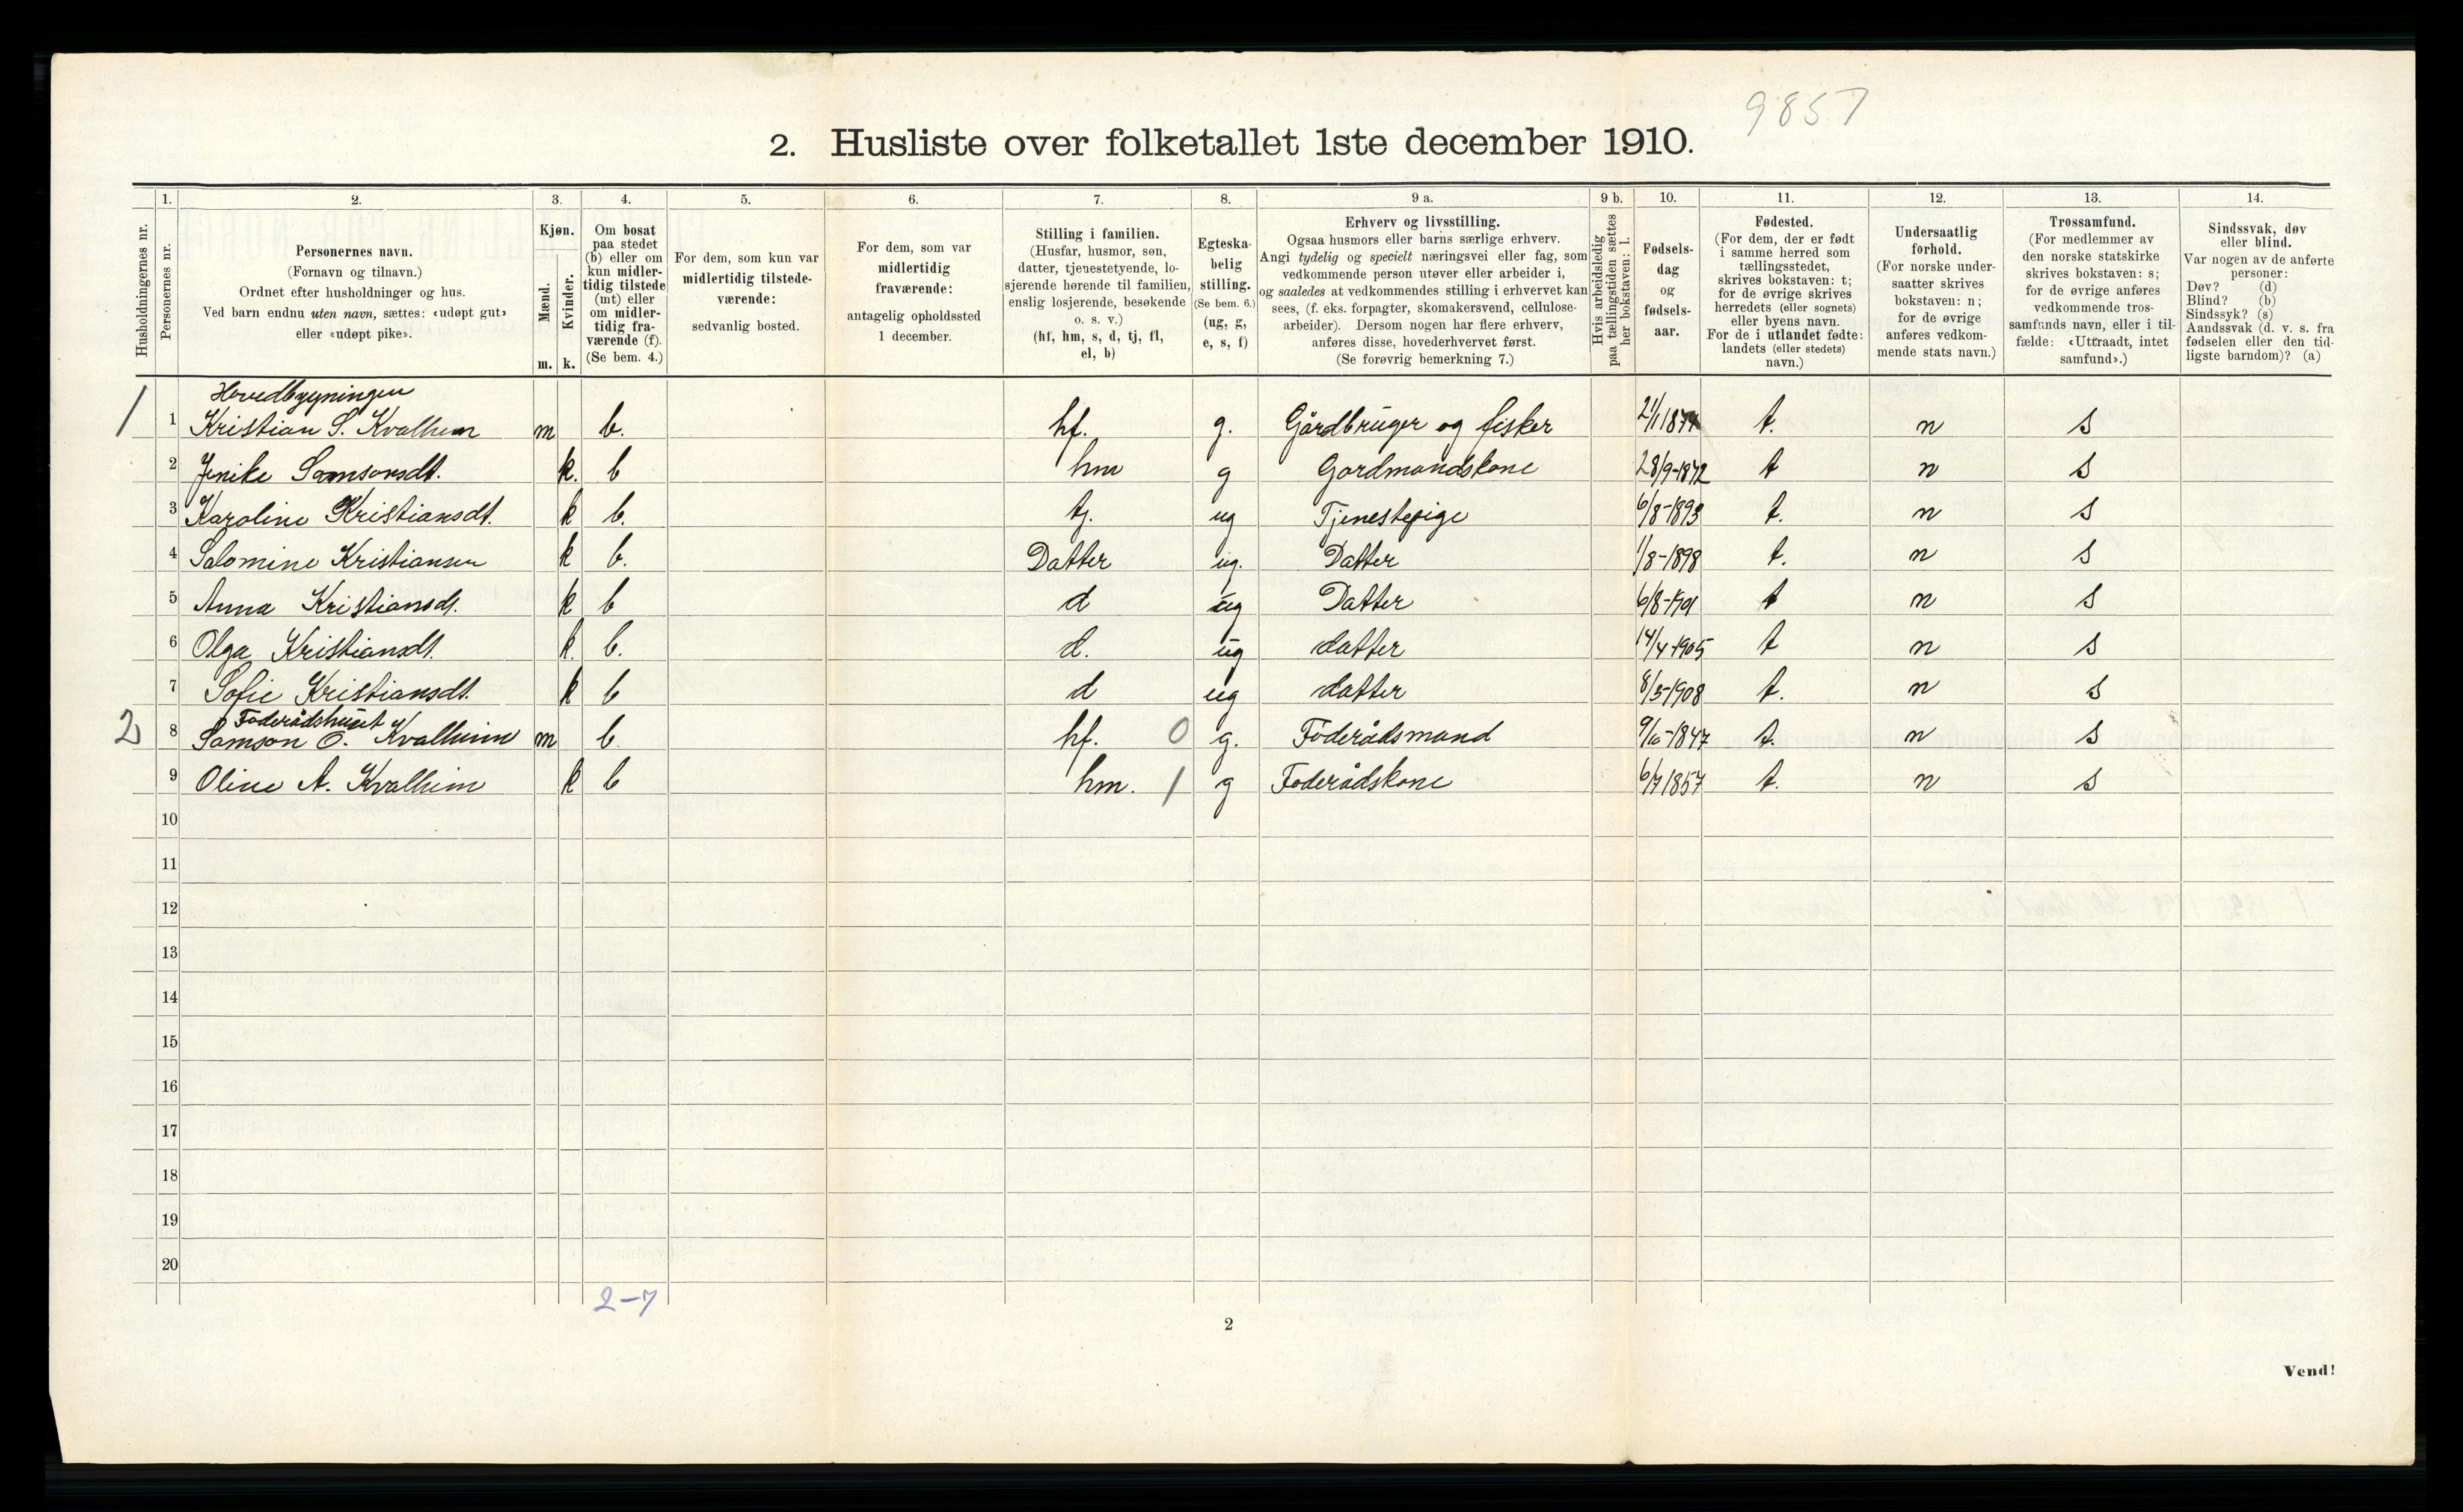 9857
2. Husliste over folketallet 1ste december 1910.
1. 2. 3. 4. 5. 6. 7. 8. 9 a. 9 b. 10. 11. 12. 13. 14.
Husholdningernes nr.
Personernes nr.
Personernes navn.
(Fornavn og tilnavn.)
Ordnet efter husholdninger og hus.
Ved barn endnu uten navn, sættes: «udøpt gut»
eller «udøpt pike».
Kjøn.
Mænd.
Kvinder.
m. k.
Om bosat
paa stedet
(b) eller om
kun midler-
tidig tilstede
(mt) eller
om midler-
tidig fra-
værende (f).
(Se bem. 4.)
For dem, som kun var
midlertidig tilstede-
værende:
sedvanlig bosted.
For dem, som var
midlertidig
fraværende:
antagelig opholdssted
1 december.
Stilling i familien.
(Husfar, husmor, søn,
datter, tjenestetyende, lo-
sjerende hørende til familien,
enslig losjerende, besøkende
o. s. v.)
(hf, hm, s, d, tj, fl,
el, b)
Egteska-
belig
stilling.
(Se bem. 6.)
(ug, g,
e, s, f)
Erhverv og livsstilling.
Ogsaa husmors eller barns særlige erhverv.
Angi tydelig og specielt næringsvei eller fag, som
vedkommende person utøver eller arbeider i,
og saaledes at vedkommendes stilling i erhvervet kan
sees, (f. eks. forpagter, skomakersvend, cellulose-
arbeider). Dersom nogen har flere erhverv,
anføres disse, hovederhvervet først.
(Se forøvrig bemerkning 7.)
Hvis arbeidsledig
paa tællingstiden sættes
her bokstaven: l.
Fødsels-
dag
og
fødsels-
aar.
Fødested.
(For dem, der er født
i samme herred som
tællingsstedet,
skrives bokstaven: t;
for de øvrige skrives
herredets (eller sognets)
eller byens navn.
For de i utlandet fødte:
landets (eller stedets)
navn.)
Undersaatlig
forhold.
(For norske under-
saatter skrives
bokstaven: n;
for de øvrige
anføres vedkom-
mende stats navn.)
Trossamfund.
(For medlemmer av
den norske statskirke
skrives bokstaven: s;
for de øvrige anføres
vedkommende tros-
samfunds navn, eller i til-
fælde: «Uttraadt, intet
samfund».)
Sindssvak, døv
eller blind.
Var nogen av de anførte
personer:
Døv? (d)
Blind? (b)
Sindssyk? (s)
Aandssvak (d. v. s. fra
fødselen eller den tid-
ligste barndom)? (a)
Hovedbygningen
1 1 Kristian S. Kvalheim m b. hf. g. Gårdbruger og fisker 21/1 1874 t. n s
2 Jenike Samsonsdt. k. b hm g Gardmandskone 28/9-1872 t n s
3 Karoline Kristiansdt. k b. tj. ug Tjenestepige 6/8-1893 t. n s
4 Salomine Kristiansen k b. Datter ug. Datter 1/8-1898 t. n s
5 Anna Kristiansd. k b d ug Datter 6/8-1901 t n s
6 Olga Kristiansdt. k. b. d. ug datter 14/4-1905 t n s
7 Sofie Kristiansdt. k b d ug datter 8/5-1908 t. n s
Føderådshuset
2 8 Samson O. Kvalheim m b. hf. 0 g. Føderådsmand 9/10-1847 t. n s
9 Oline A. Kvalheim k b hm. 1 g Føderådskone 6/7 1857 t. n s
10
11
12
13
14
15
16
17
18
19
20
2-7
2
Vend!